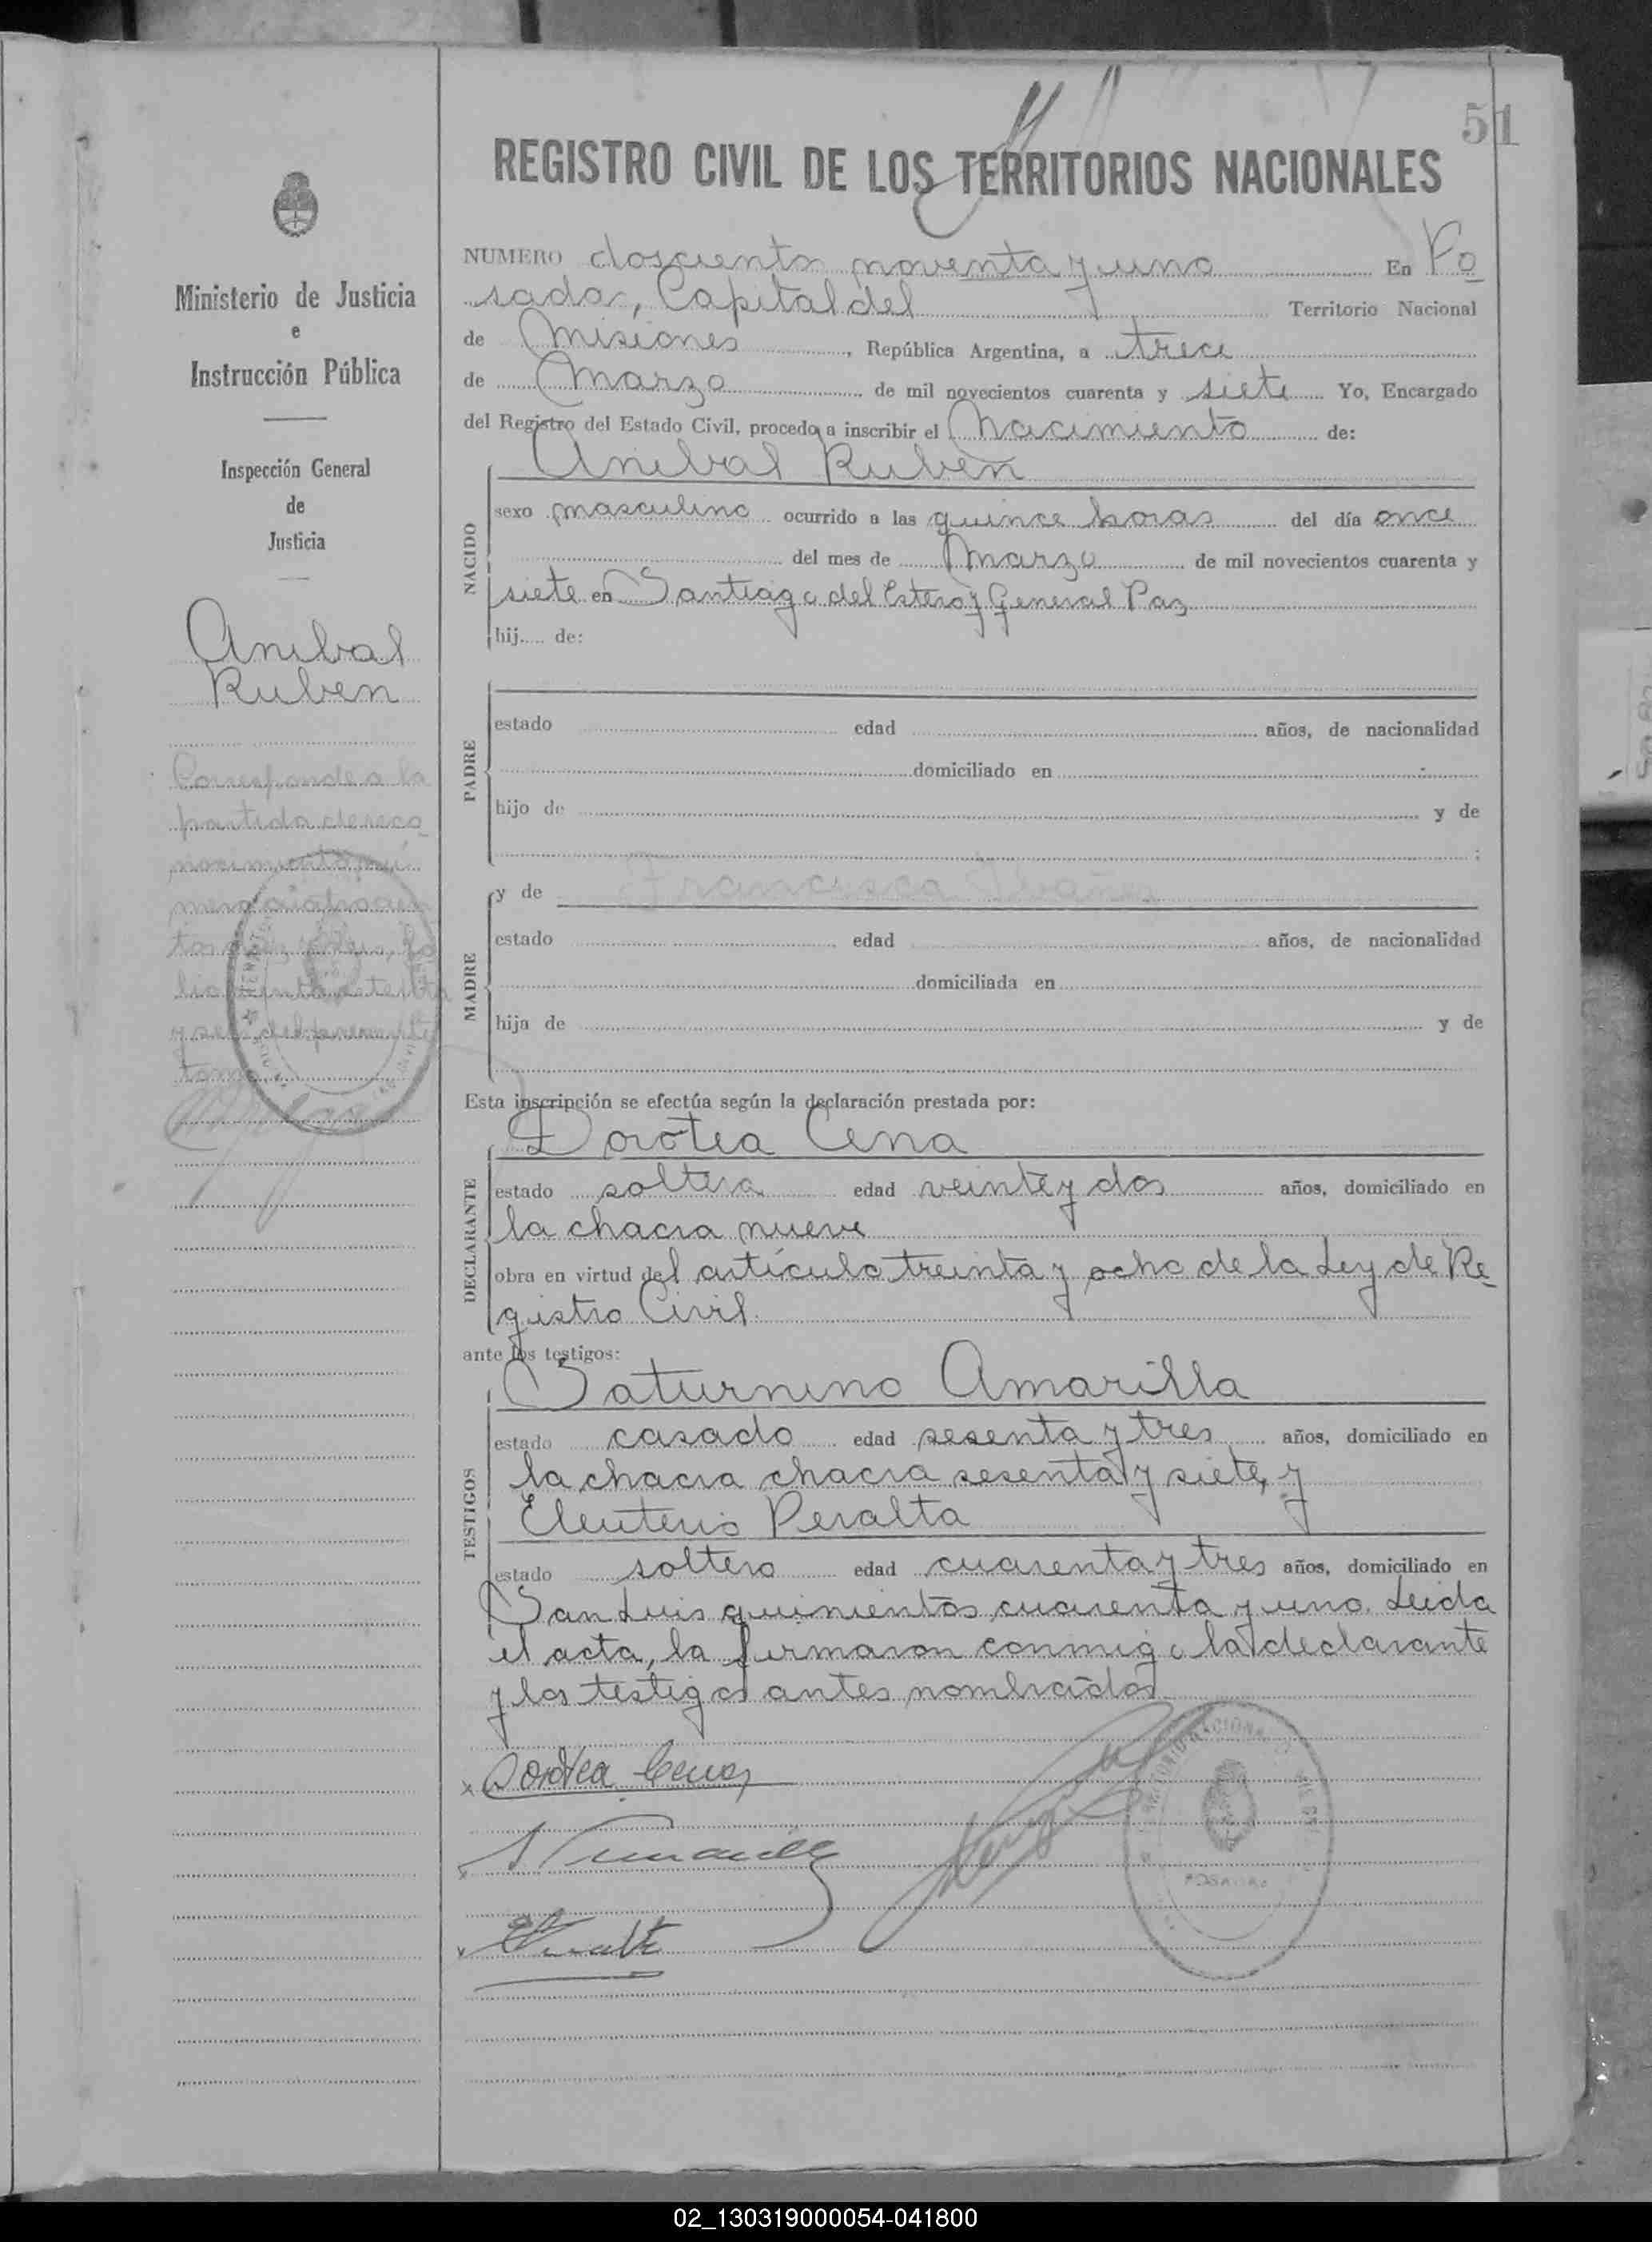 51
REGISTRO CIVIL DE LOS TERRITORIOS NACIONALES
Ministerio de Justicia
e
Instrucción Pública
Inspección General
de
Justicia
Anibal
Ruben
Corresponde a la
partida de reco
nocimiento nú
mero cuatrocien
tos diez y seis, fo
lio ciento setenta
y seis del presente
tomo.
NUMERO doscientos noventa y uno En Po
sadas, Capital del Territorio Nacional
de Misiones, República Argentina, a trece
de Marzo de mil novecientos cuarenta y siete Yo, Encargado
del Registro del Estado Civil, procedo a inscribir el Nacimiento de:
NACIDO
Anibal Ruben
sexo masculino ocurrido a las quince horas del día once
del mes de Marzo de mil novecientos cuarenta y
siete en Santiago del Estero y General Paz
hij..... de:
PADRE
estado edad años, de nacionalidad
domiciliado en
hijo de y de
MADRE
y de Francisca Ibañez
estado edad años, de nacionalidad
domiciliada en
hija de y de
Esta inscripción se efectúa según la declaración prestada por:
DECLARANTE
Dorotea Cena
estado soltera edad veinte y dos años, domiciliado en
la chacra nueve
obra en virtud del artículo treinta y ocho de la Ley de Re
gistro Civil.
ante los testigos:
TESTIGOS
Saturnino Amarilla
estado casado edad sesenta y tres años, domiciliado en
la chacra chacra sesenta y siete, y
Eleuterio Peralta
estado soltero edad cuarenta y tres años, domiciliado en
San Luis quinientos cuarenta y uno. Leida
el acta, la firmaron conmigo la declarante
y los testigos antes nombrados
x Dorotea Cena
POSADAS
02_130319000054-041800